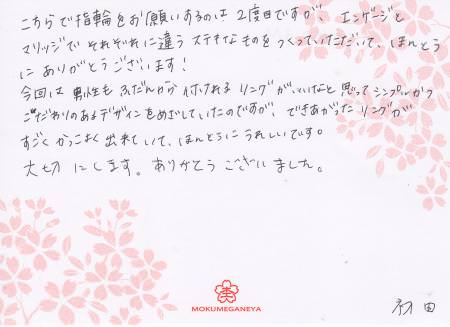 こちらで指輪をお願いするのは2度目ですが、エンゲージと
マリッジでそれぞれに違うステキなものをつくっていただいて、ほんとう
にありがとうございます！
今回は男性もふだんから付けれるリングがいいなと思ってシンプルかつ
こだわりのあるデザインをめざしていたのですが、できあがったリングが
すごくかっこよく出来ていて、ほんとうにうれしいです。
大切にします。ありがとうございました。
MOKUMEGANEYA
田